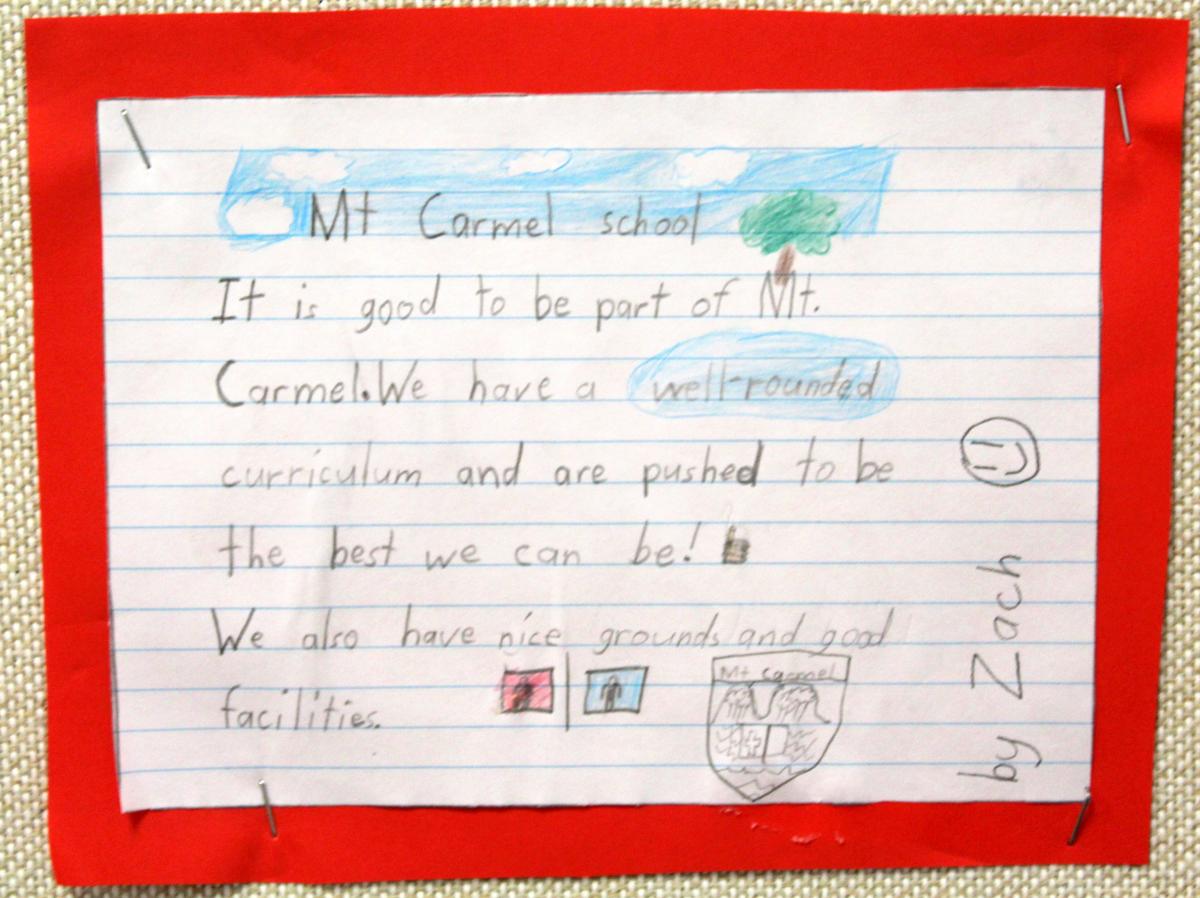 Mt Carmel school
It is good to be part of Mt.
Carmel. We have a well-rounded
curriculum and are pushed to be
the best we can be!
We also have nice grounds and good
facilities.
Mt Carmel
by Zach